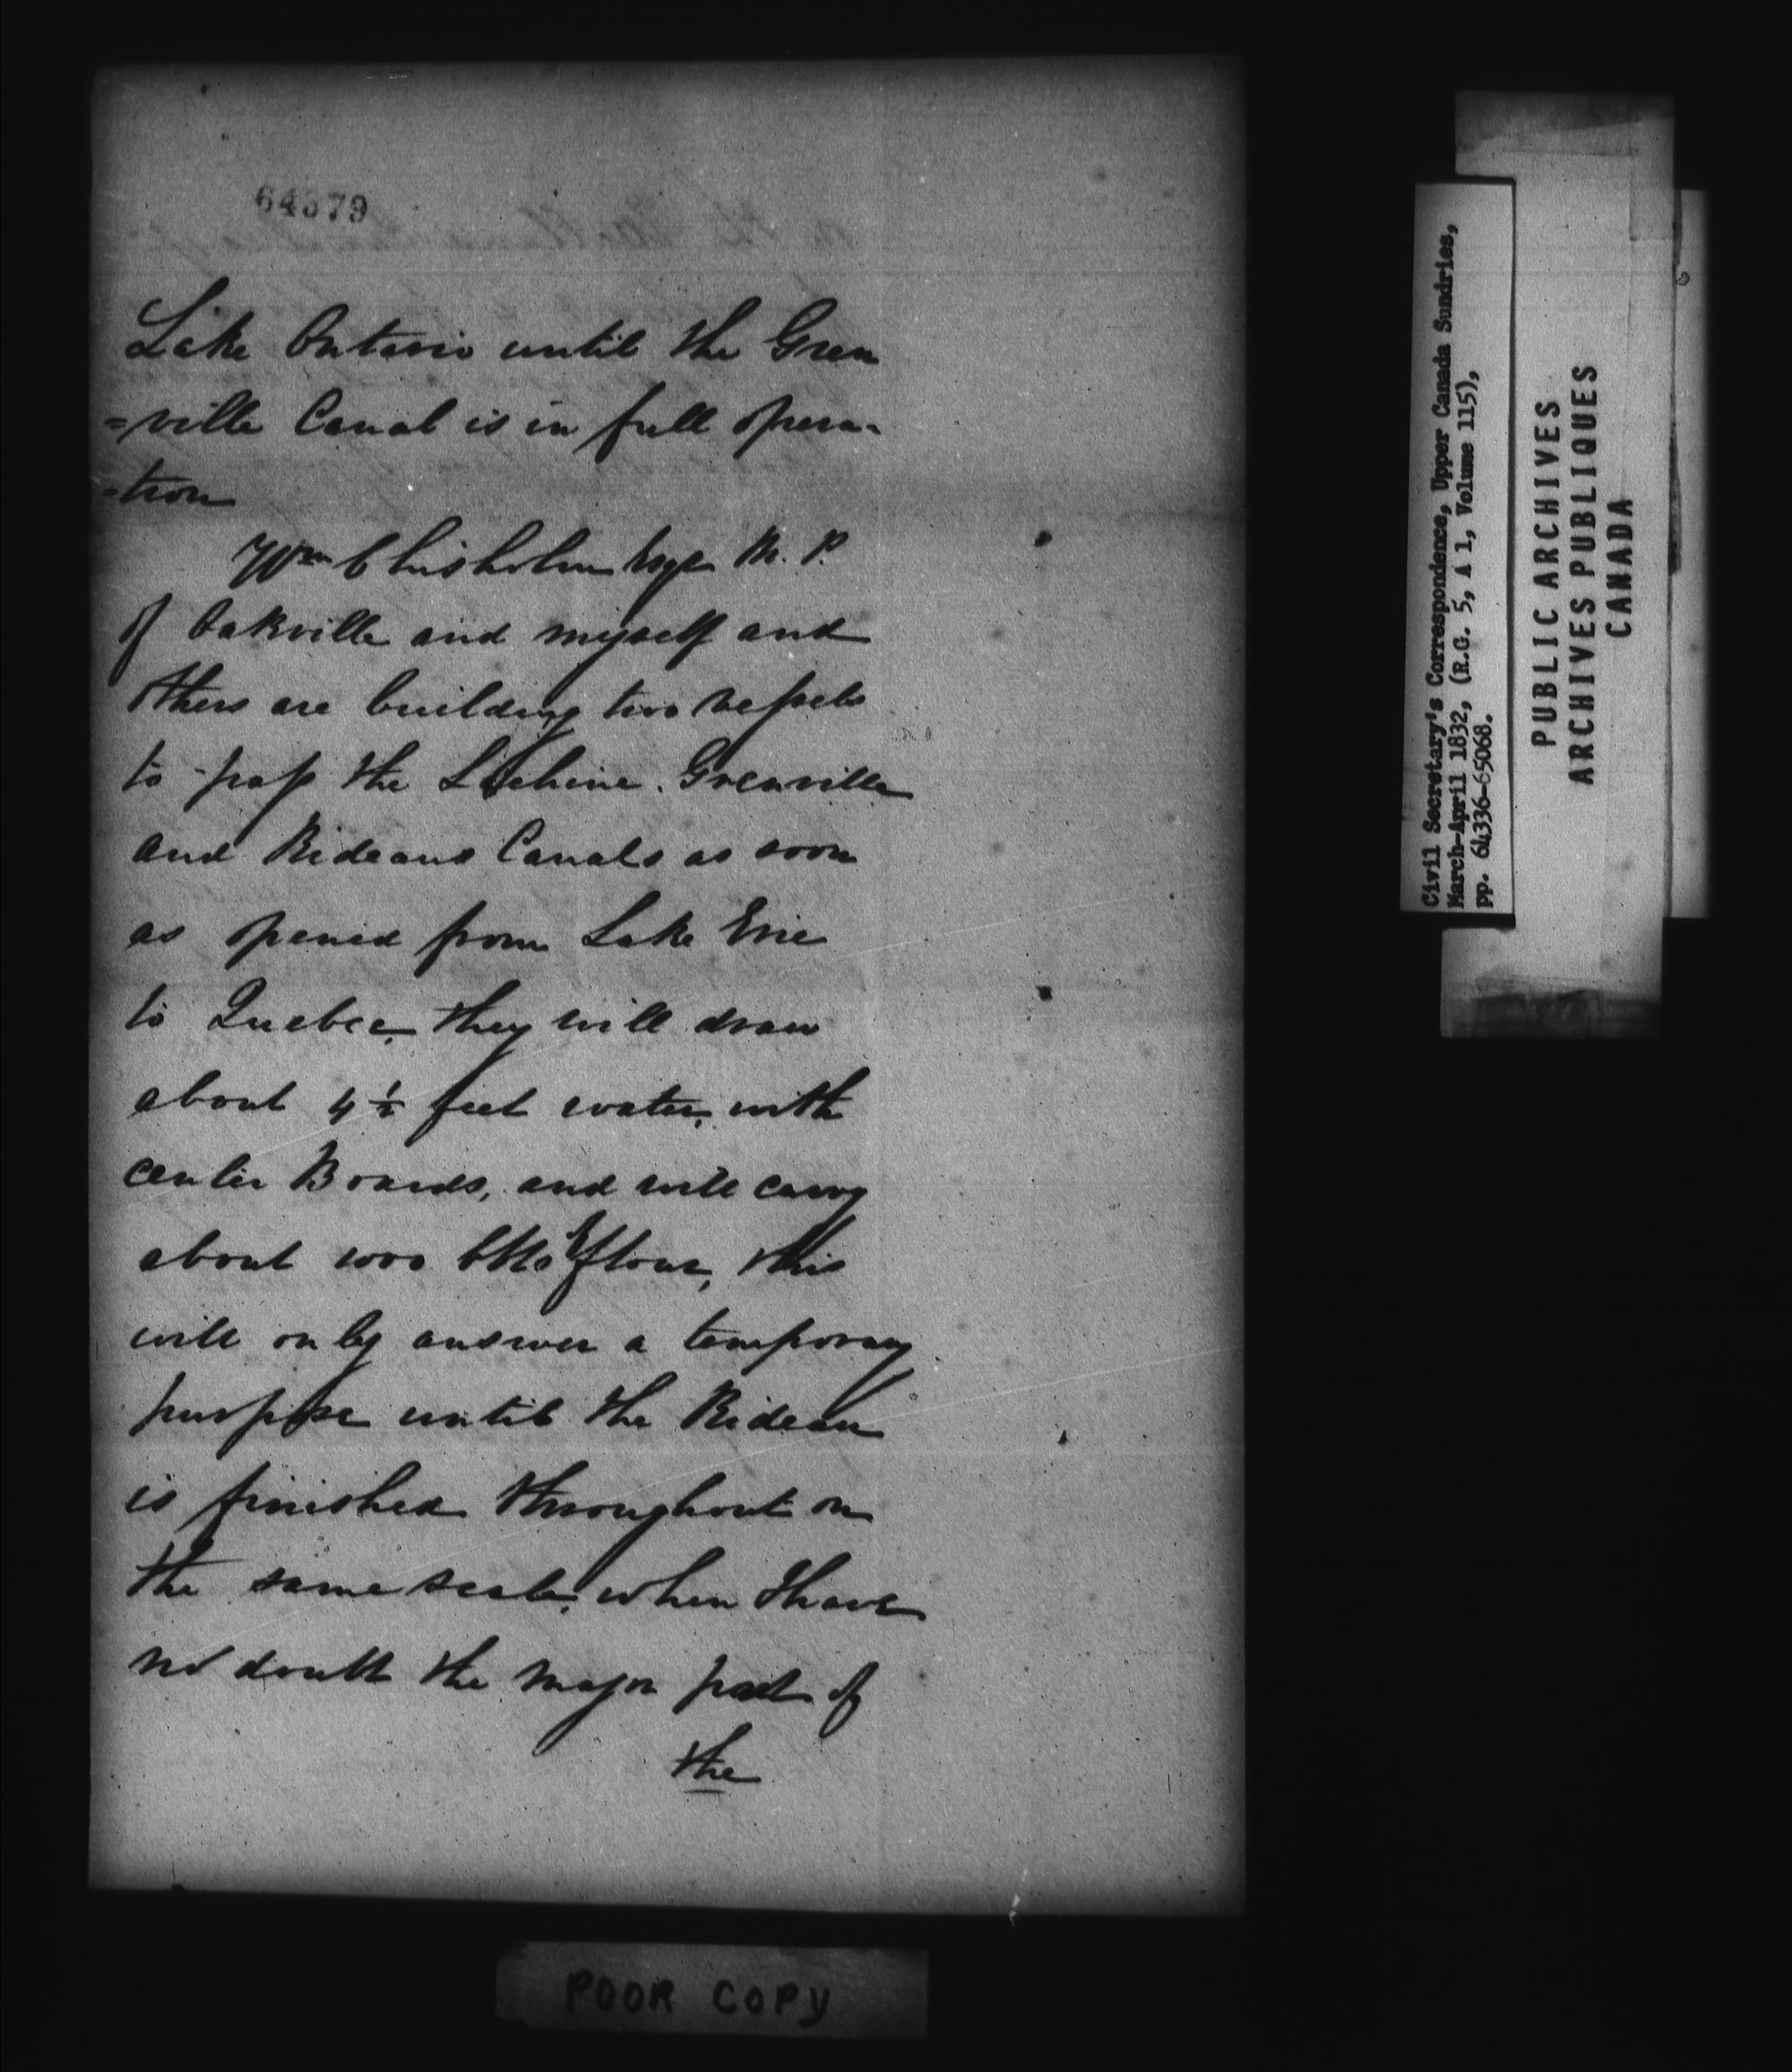 64379
Lake Ontario until the Gren
=ville Canal is in full opera-
=tion
Wm Chisholm Esqr M. P.
of Oakville and myself and
others are building two vessels
to pass the Lachine. Grenville
and Rideaus Canals as soon
as opened from Lake Erie
to Quebec, they will draw
about 4 1/2 feet water, with
center Boards, and will carry
about 1000 bbls flour, this
will only answer a temporary
purpose until the Rideau
is finished throughout on
the same scale, when I have
no doubt the major part of
the
Civil Secretary's Correspondence, Upper Canada Sundries,
March-April 1832, (R.G. 5, A 1, Volume 115),
pp. 64336-65068.
PUBLIC ARCHIVES
ARCHIVES PUBLIQUES
CANADA
POOR COPY